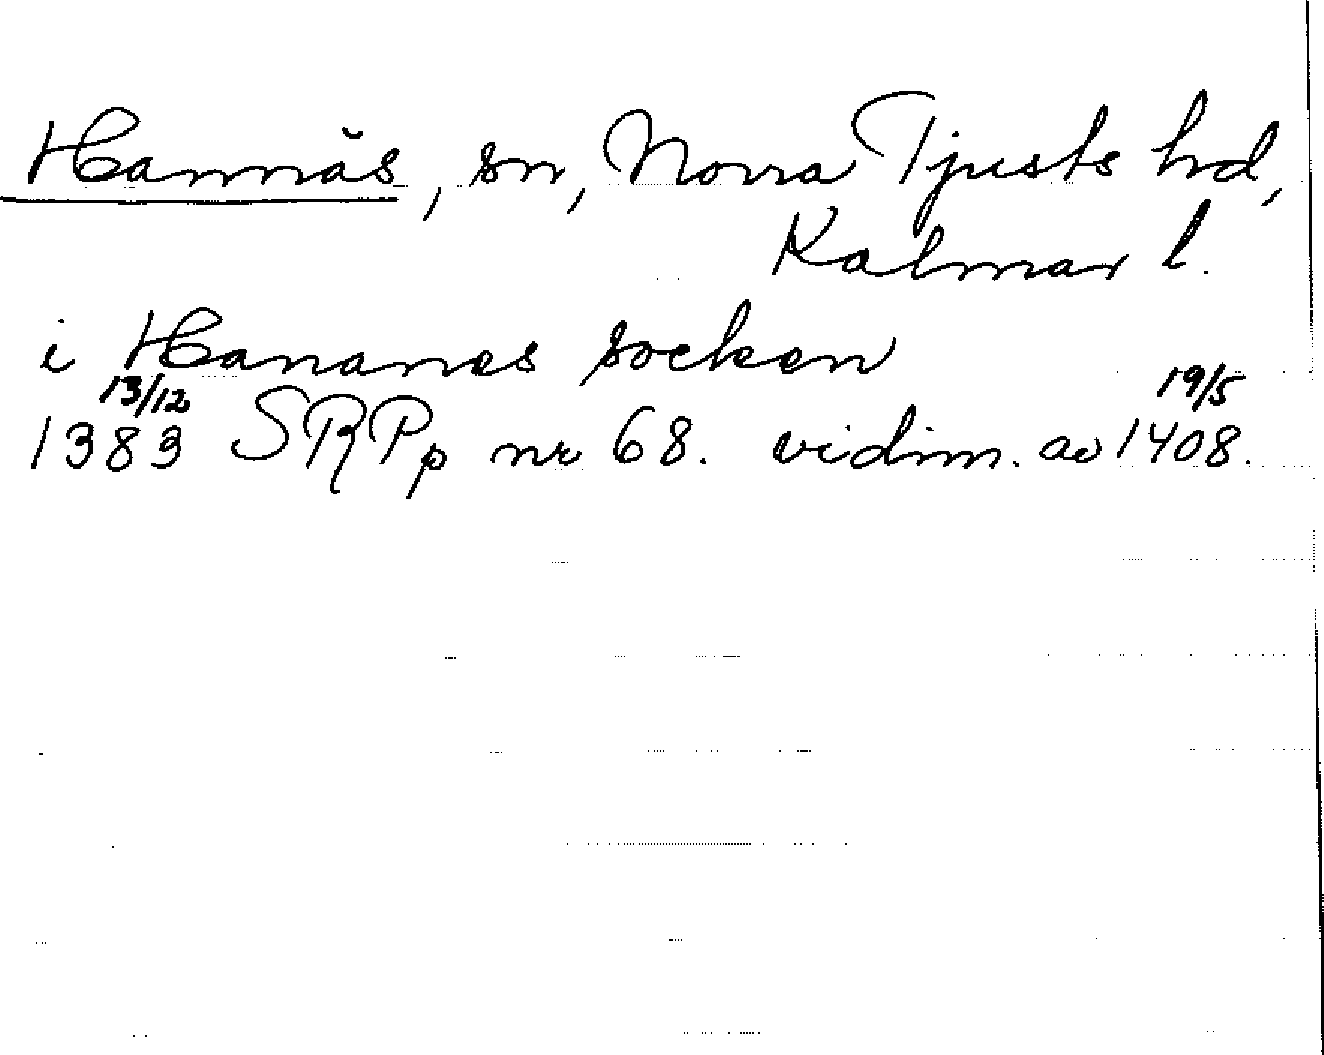 Hannäs, sn, Norra Tjusts hd,
Kalmar l.
i Hananes socken
13/12 19/5
1383 SRPp nr 68. vidim. av 1408.